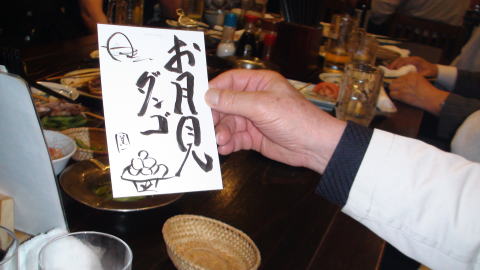 お月見
ダンゴ